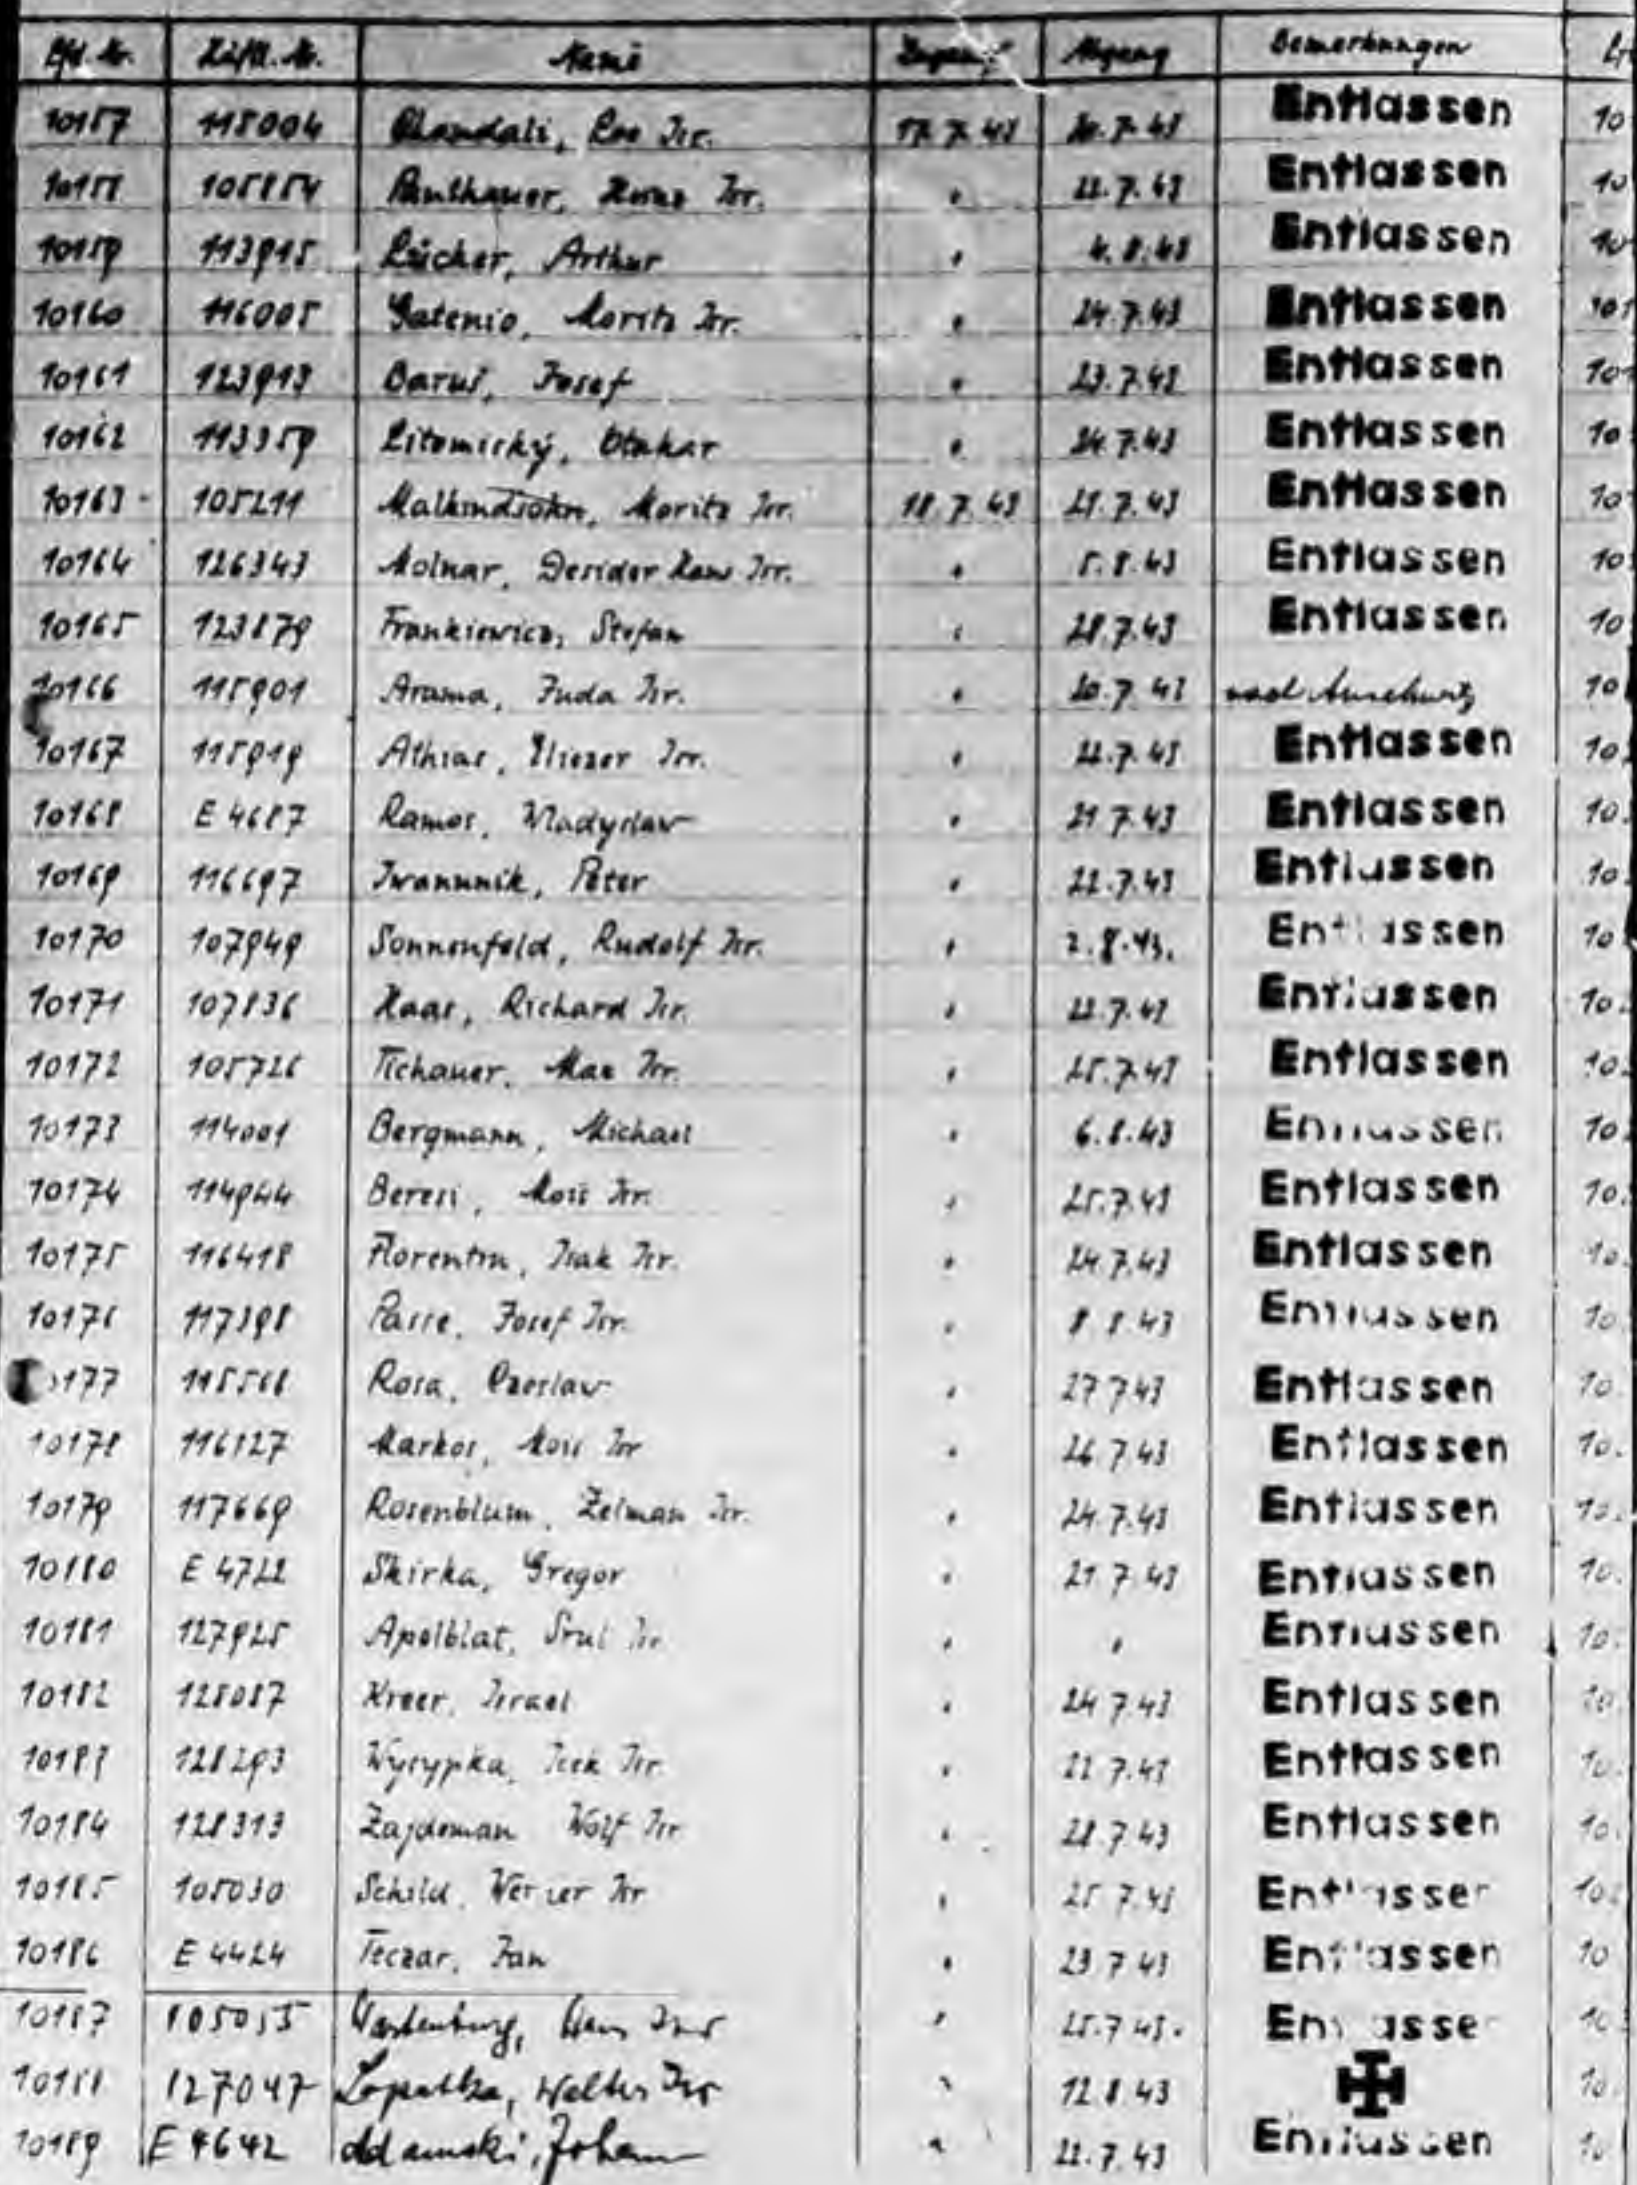 Lfd. Nr. Häftl. Nr. Name Zugang Abgang Bemerkungen
10157 118004 Leo Isr. 17.7.43 20.7.43 Entlassen 10
10158 105854 Isr. " 22.7.43 Entlassen 10
10159 113915 Lücker, Arthur " 4.8.43 Entlassen 10
10160 116005 Gatenio, Moritz Isr. " 24.7.43 Entlassen 101
10161 123913 Baruš, Josef " 23.7.43 Entlassen 101
10162 113359 Litomiský, Otakar " 24.7.43 Entlassen 10
10163 105211 Malkindsohn, Moritz Isr. 18.7.43 25.7.43 Entlassen 10
10164 126343 Molnar, Desider Isr. " 5.8.43 Entlassen 10
10165 123879 Frankiewicz, Stefan " 28.7.43 Entlassen 10
10166 115901 Arama, Juda Isr. " 20.7.43 nach Auschwitz 10
10167 115919 Athias, Eliezer Isr. " 22.7.43 Entlassen 10
10168 E 4687 Ramos, Wladyslaw " 21.7.43 Entlassen 10.
10169 116697 Iwanunik, Peter " 22.7.43 Entlassen 10
10170 107949 Sonnenfeld, Rudolf Isr. " 2.8.43. Entlassen 10
10171 107836 Haas, Richard Isr. " 22.7.43 Entlassen 10
10172 105726 Tichauer, Max Isr. " 25.7.43 Entlassen 10
10173 114001 Bergmann, Michael " 6.8.43 Entlassen 10
10174 114944 Beresi, Mois Isr. " 25.7.43 Entlassen 10.
10175 116418 Florentin, Isak Isr. " 24.7.43 Entlassen 10.
10176 117398 Passe, Josef Isr. " 8.8.43 Entlassen 10
10177 115568 Rosa, Czeslaw " 27.7.43 Entlassen 10
10178 116127 Markos, Mois Isr " 26.7.43 Entlassen 10.
10179 117669 Rosenblum, Zelman Isr. " 24.7.43 Entlassen 10.
10180 E 4722 Skirka, Gregor " 21.7.43 Entlassen 10.
10181 127925 Apelblat, Srul Isr " " Entlassen 10.
10182 128087 Kreer, Israel " 24.7.43 Entlassen 10.
10183 128293 Wysypka, Icek Isr " 22.7.43 Entlassen 10.
10184 128313 Zajdeman Wolf Isr " 28.7.43 Entlassen 10.
10185 105030 Schild, Werner Isr " 25.7.43 Entlassen 10
10186 E 4424 Teczar, Jan " 23.7.43 Entlassen 10
10187 105055 Wartenburg, Hans Isr " 25.7.43. Entlassen 10
10188 127047 Lopatka, Walter Isr " 12.8.43 10
10189 E 4642 Adamski, Johann " 22.7.43 Entlassen 10